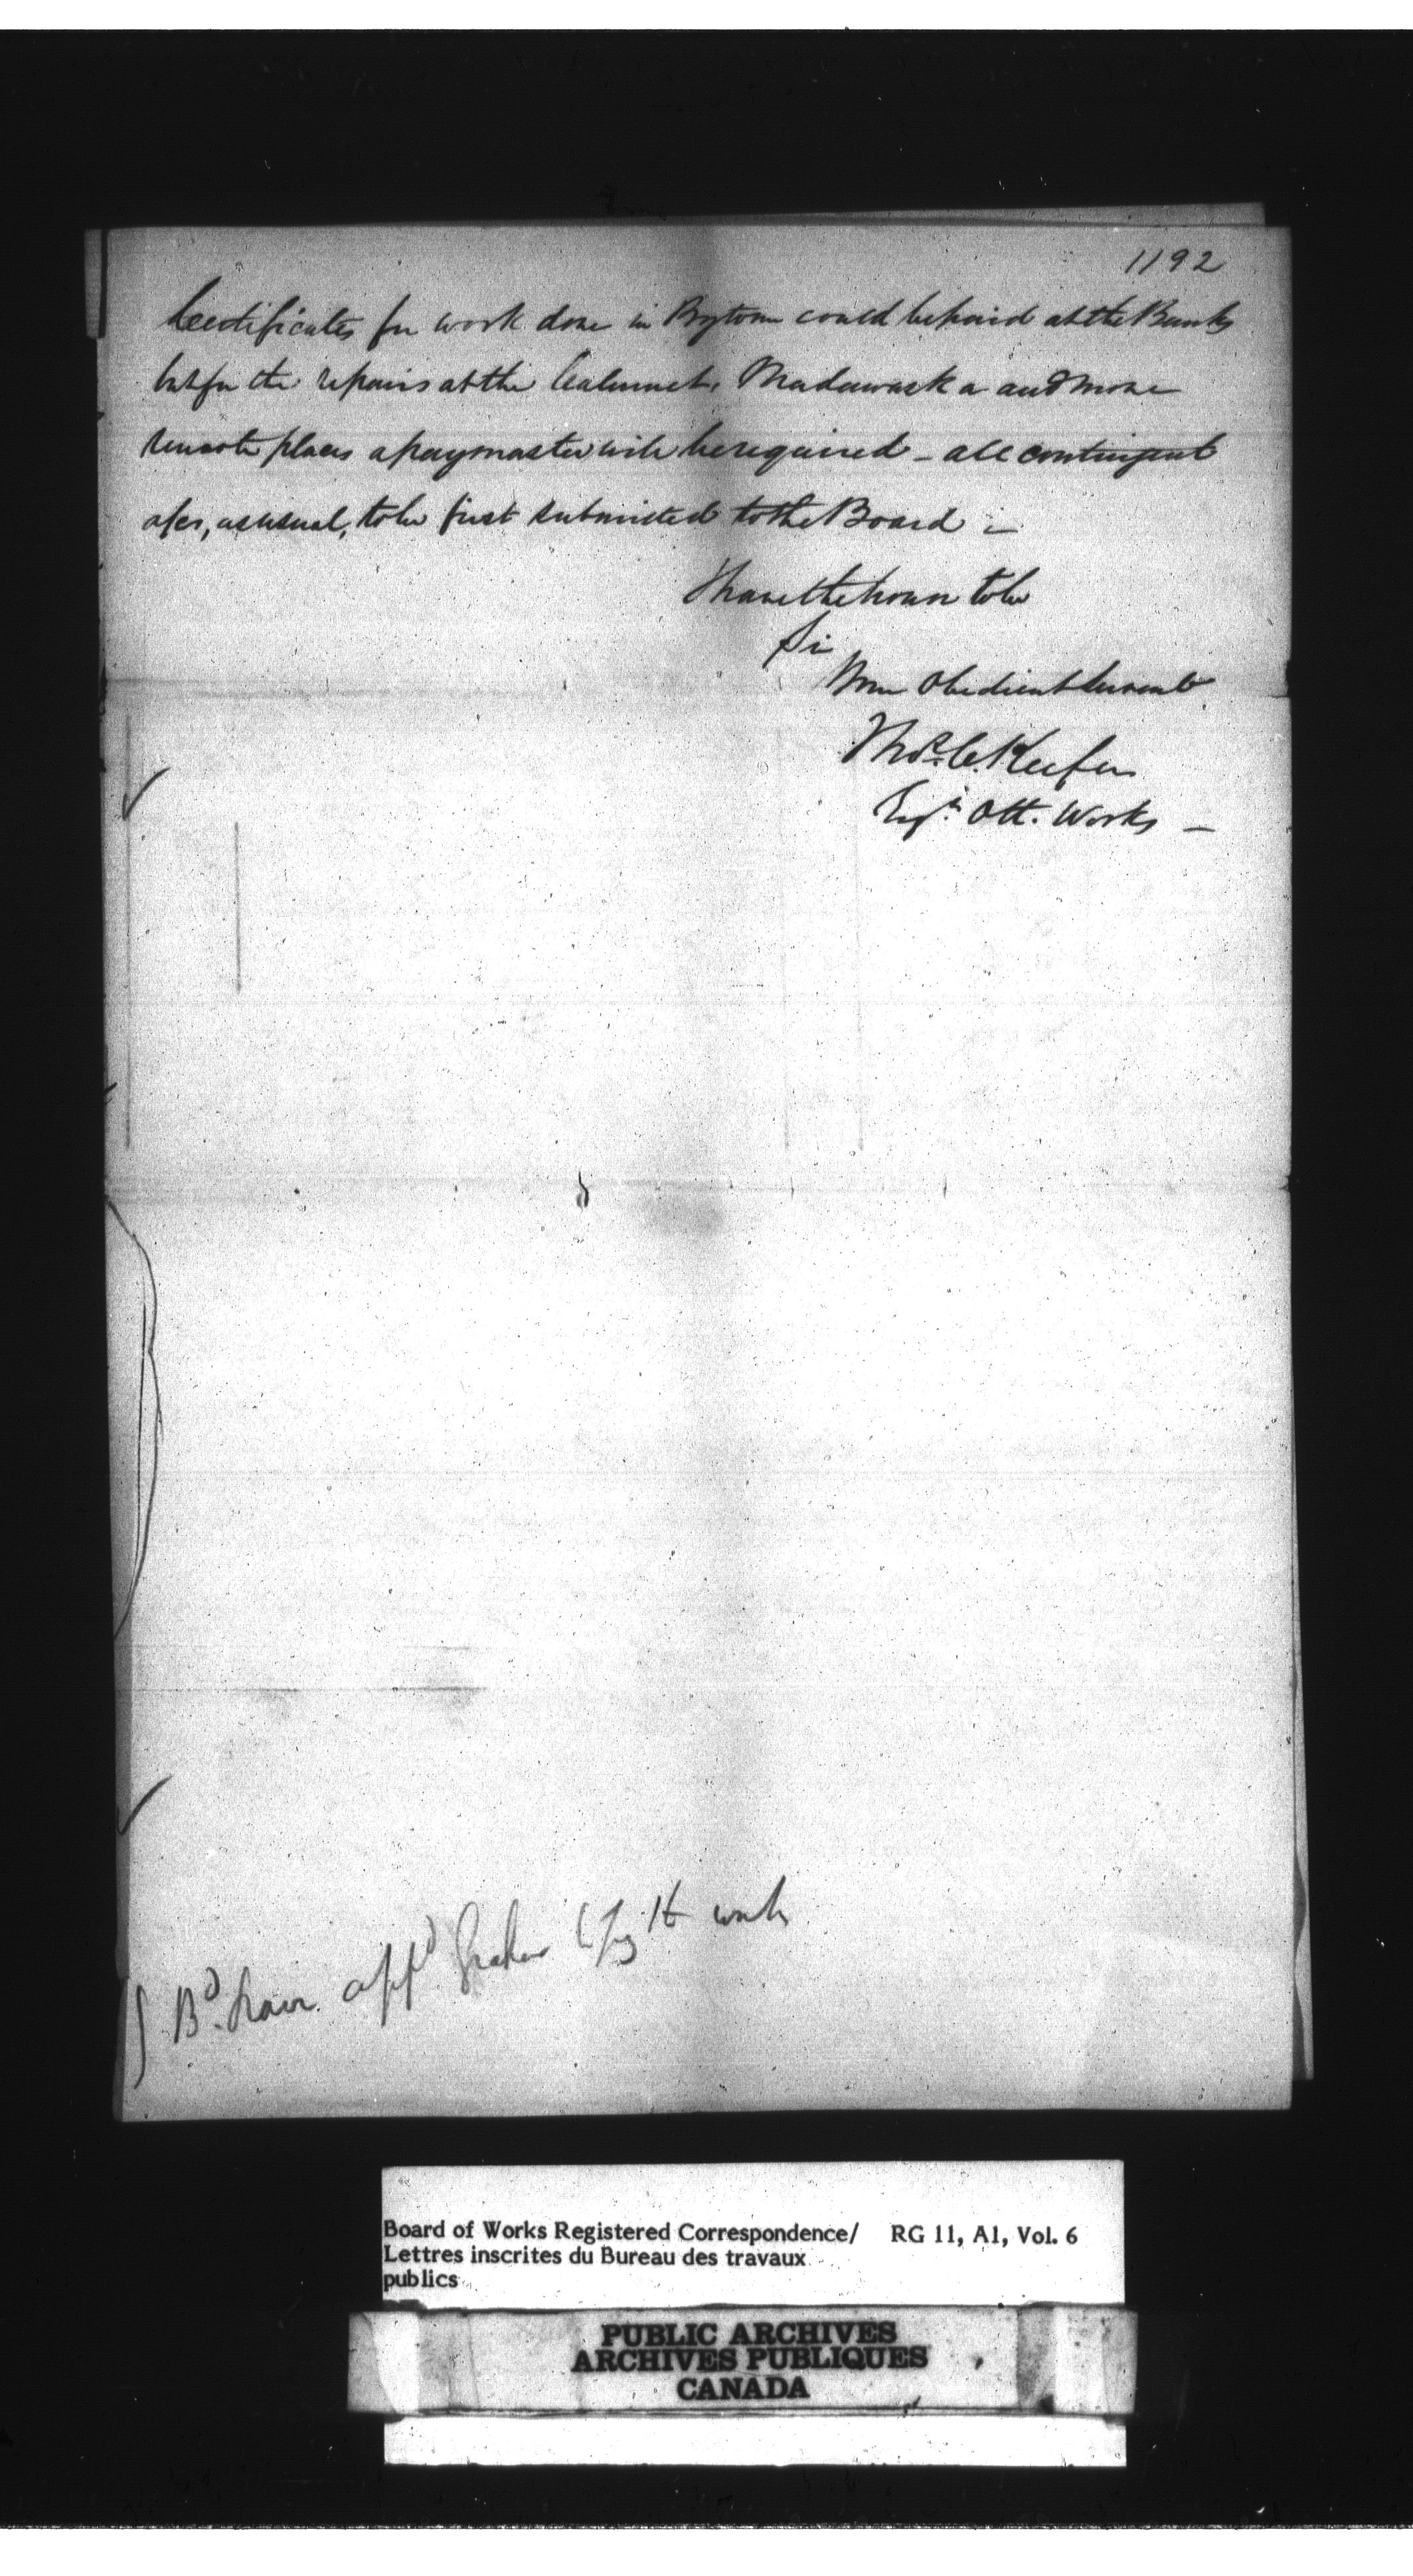 1192
Certificates for work done in Bytown could be paid at the Banks
but for the repairs at the Calumet, Madawaska and more
remote places a paymaster will be required – all contingent
a/cs, as usual, to be first submitted to the Board –
I have the honor to be
Sir
Your Obedient Servant
Thos. C. Keefer
Engr. Ott. Works –
Bd. have appd Graham
works
Board of Works Registered Correspondence/ RG 11, A1, Vol. 6
Lettres inscrites du Bureau des travaux
publics
PUBLIC ARCHIVES
ARCHIVES PUBLIQUES
CANADA